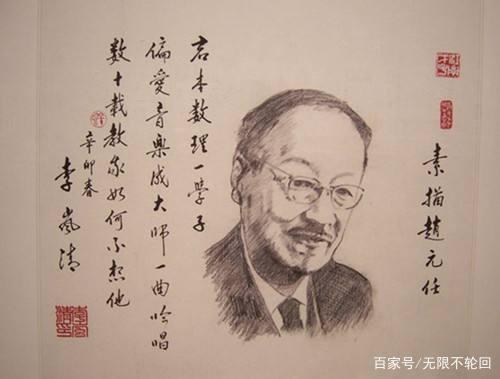 素描趙元任
君本数理一學子
偏愛音樂成大师一曲吟唱
数十載教我如何不想他
辛卯春
李嵐清
百家号/无限不轮回